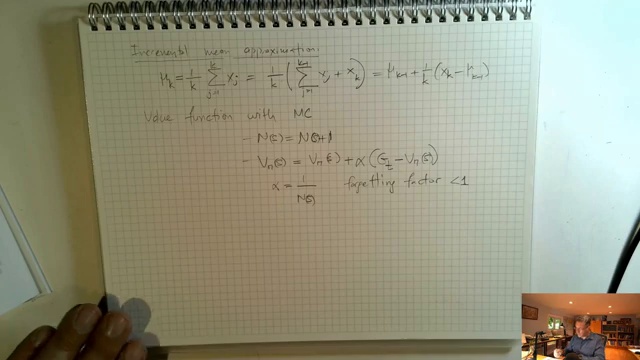 Incremental mean approximation:
μ_k = 1/k ∑_{j=1}^{k} x_j = 1/k (∑_{j=1}^{k-1} x_j + x_k) = μ_{k-1} + 1/k (x_k - μ_{k-1})
Value function with MC
- N(s) = N(s)+1
- V_π(s) = V_π(s) + α (G_t - V_π(s))
α = 1/N(s) forgetting factor <1